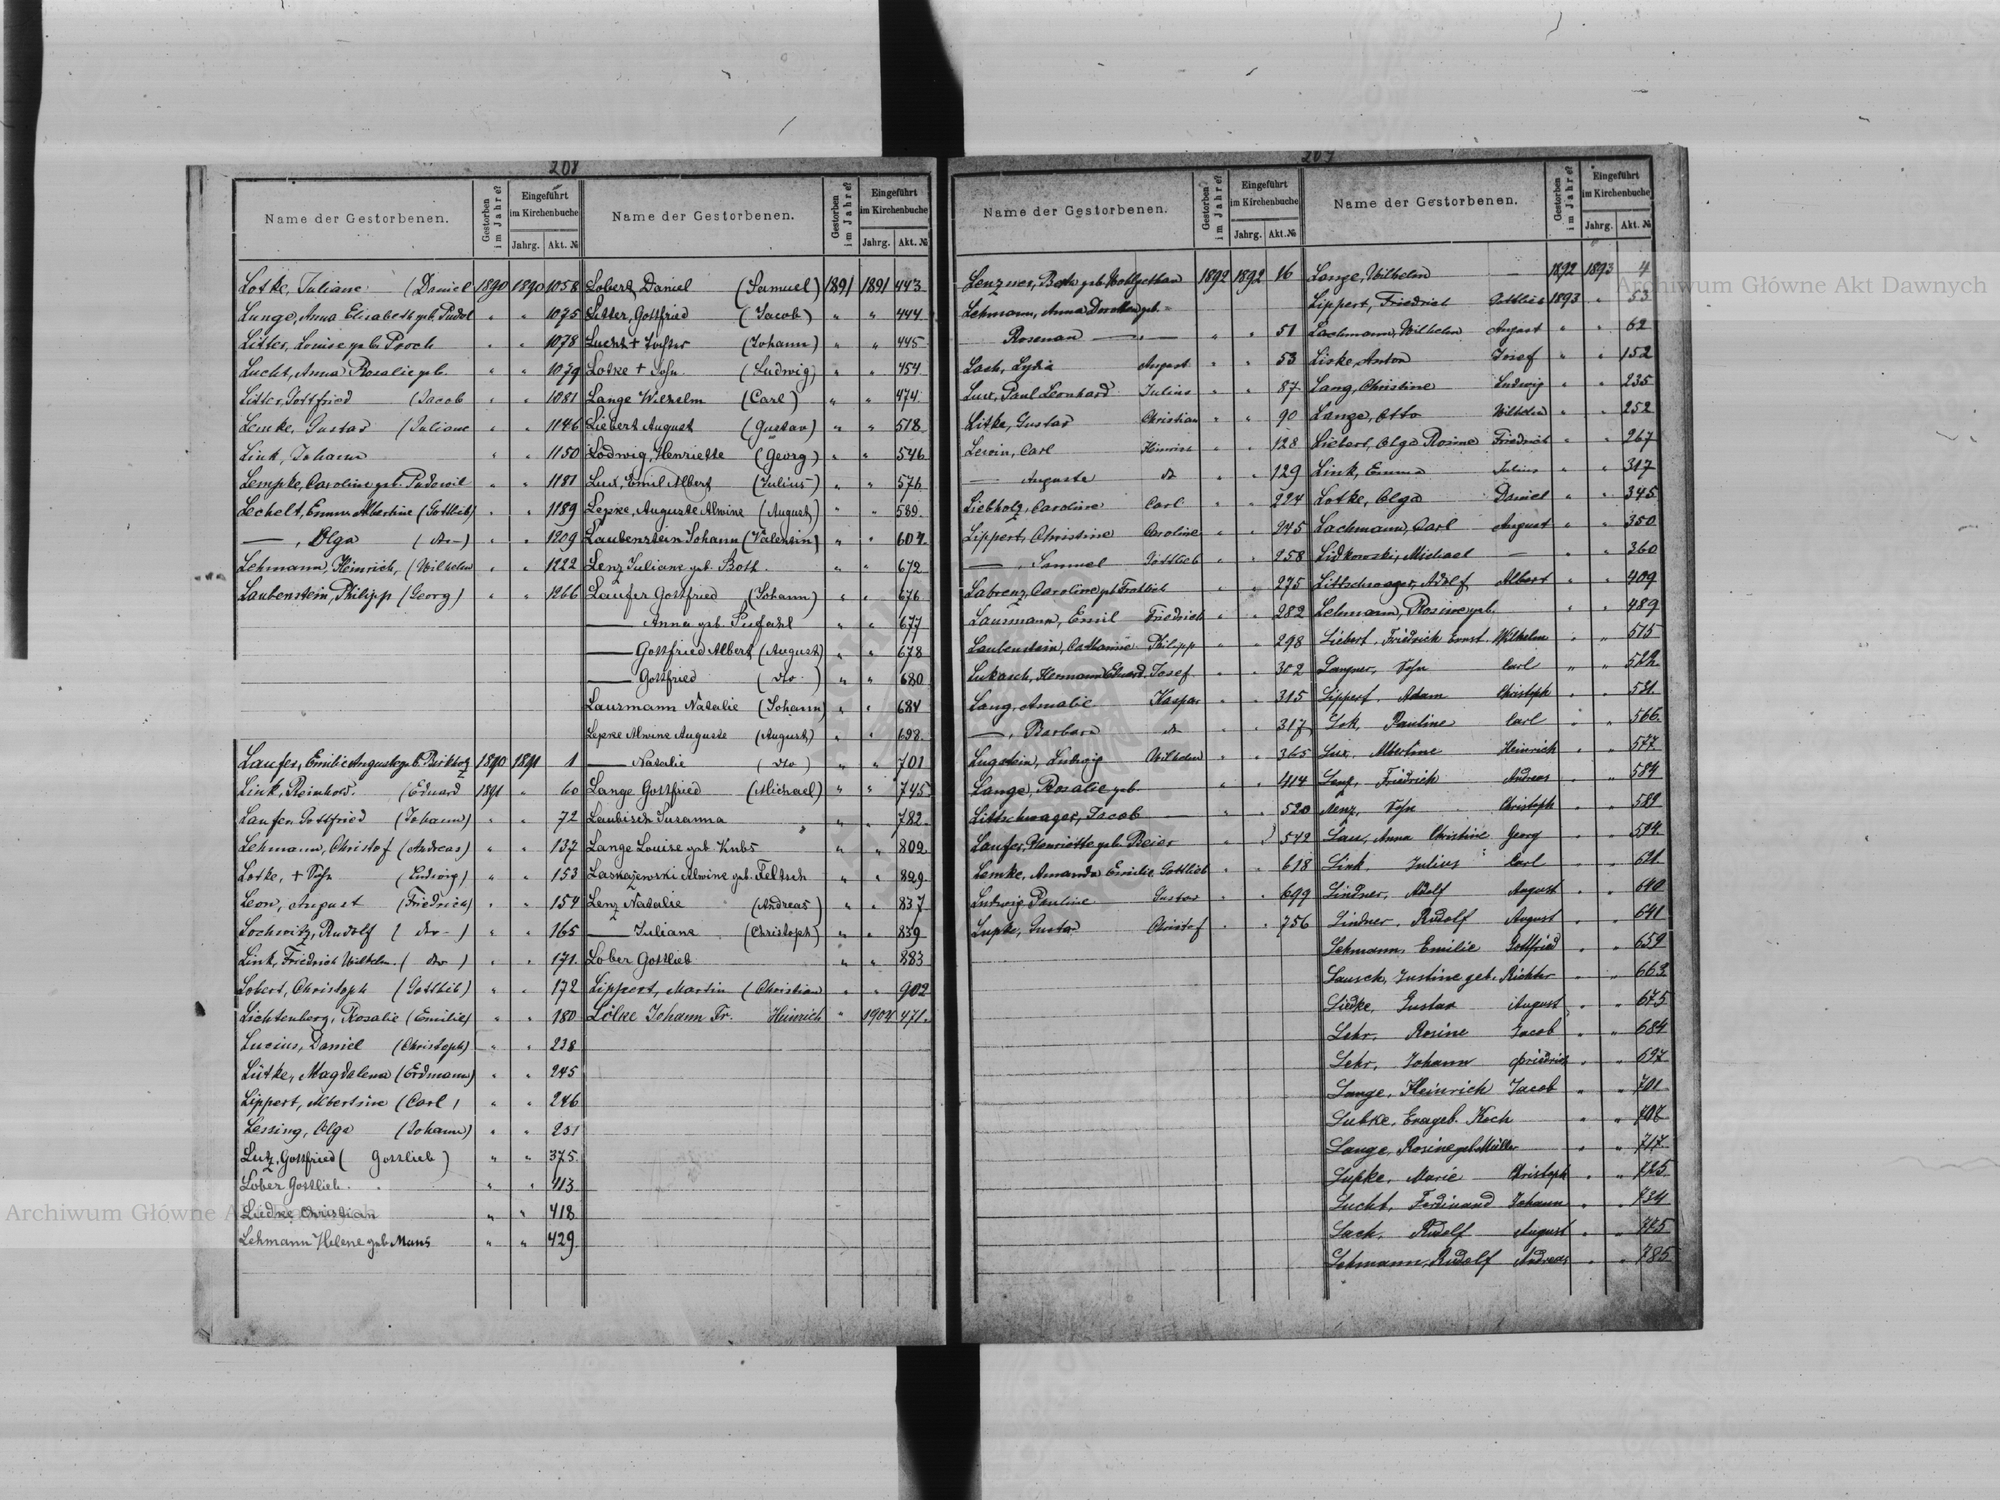 208
Name der Gestorbenen. Gestorben im Jahre? Eingeführt im Kirchenbuche Jahrg. Akt. №
Lotke, Juliane (Daniel 1890 1890 1058
Lange, Anna Elisabeth geb. " " 1075
Litter, Louise geb. " " 1078
Lucht, Anna Rosalie geb. " " 1079
Litter, Gottfried (Jacob " " 1081
Lemke, Gustav (Juliane " " 1146
Link, Johann " " 1150
Lempke, Caroline geb. " " 1181
Lechelt, Emma Albertine (Gottlieb) " " 1189
—, Olga (do—) " " 1209
Lehmann, Heinrich, (Wilhelm " " 1222
Laubenstein, Philipp (Georg) " " 1266
Laufer, Emilie Auguste geb. 1890 1891 1
Link, Reinhold. (Eduard 1891 " 60
Laufer, Gottfried (Johann) " " 72
Lehmann, Christof (Andreas) " " 137
Lotke, + Sohn (Ludwig) " " 153
Leon, August (Friedrich) " " 154
Lochwitz, Rudolf ( do—) " " 165
Link, Friedrich Wilhelm. ( do ) " " 171.
Lobert, Christoph (Gottlieb) " " 172
Lichtenberg, Rosalie (Emilie) " " 180
Lucius, Daniel (Christoph) " " 238
Lütke, Magdalena (Erdmann) " " 245
Lippert, Albertine (Carl) " " 246
Lessing, Olga (Johann) " " 251
Lutz, Gottfried ( Gottlieb ) " " 375.
Lober Gottlieb. " " 413
Liedke Christian " " 418
Lehmann Helene geb. Mans " " 429
Name der Gestorbenen. Gestorben im Jahre? Eingeführt im Kirchenbuche Jahrg. Akt. №
Lobert, Daniel (Samuel) 1891 1891 443
Litter, Gottfried (Jacob) " " 444
Lucht + Tochter (Johann) " " 445
Lotke + Sohn (Ludwig) " " 454
Lange Wilhelm (Carl) " " 474
Liebert August (Gustav) " " 518
Lodwig, Henriette (Georg) " " 546
Lux, Emil Albert (Julius) " " 576
Lepke, Auguste Alwine (August) " " 589
Laubenstein Johann (Valentin) " " 607
Lenz Juliane geb. Both. " " 672
Laufer Gottfried (Johann) " " 676
— Anna geb. " " 677
— Gottfried Albert (August) " " 678
— Gottfried (do.) " " 680
Lausmann Natalie (Johann) " " 684
Lepke Alwine Auguste (August) " " 698
— Natalie (do) " " 701
Lange Gottfried (Michael) " " 745
Laubisch Susanna " " 782
Lange Louise geb. " " 802
Laskajewski Alwine geb. Feltsch " " 829
Lenz Natalie (Andreas) " " 837
— Juliane (Christoph) " " 859
Lober Gottlieb " " 883
Lippert, Martin (Christian " " 902
Lölke Johann Fr. Heinrich " 1904 471.
207
Name der Gestorbenen. Gestorben im Jahre? Eingeführt im Kirchenbuche Jahrg. Akt. №
Lenzner, geb. 1892 1892 16
Lehmann, Anna Dorothea geb.
Rosenau — " — " " 51
Lach, Lydia August " " 53
Lux, Paul Leonhard Julius " " 87
Litke, Gustav Christian " " 90
Lewin, Carl Heinrich " " 128
— Auguste do " " 129
Liebholz, Caroline Carl " " 224
Lippert, Christine Caroline " " 245
—, Samuel Gottlieb " " 258
Labrenz, Caroline geb. " " 275
Lausmann, Emil Friedrich " " 282
Laubenstein, Catharine Philipp " " 298
Lukasch, Hermann Eduard Josef " " 302
Lang, Amalie Kaspar " " 315
—, Barbara do " " 317
Lugstein, Ludwig Wilhelm " " 365
Lange, Rosalie geb. " " 414
Littschwager, Jacob — " " 520
Laufer, Henriette geb. Beier " 542
Lemke, Amanda Emilie Gottlieb " " 618
Ludwig Pauline Gustav " " 699
Lupke, Gustav Christof " " 756
Name der Gestorbenen. Gestorben im Jahre? Eingeführt im Kirchenbuche Jahrg. Akt. №
Lange, Wilhelm — 1892 1893 4
Lippert, Friedrich Gottlieb 1893 " 53
Lachmann, Wilhelm August " " 62
Liske, Anton Josef " " 152
Lang, Christine Ludwig " " 235
Lange, Otto Wilhelm " " 252
Liebert, Olga Rosine Friedrich " " 267
Link, Emma Julius " " 317
Lotke, Olga Daniel " " 345
Lachmann, Carl August " " 350
Lidkowski, Michael — " " 360
Littschwager, Adolf Albert " " 409
Lehmann, Rosine geb. " " 489
Liebert, Friedrich Ernst Wilhelm " " 515
Langner, Sohn Carl " " 522
Lippert, Adam Christoph " " 531
Lok, Pauline Carl " " 566
Lux, Albertine Heinrich " " 577
Lenz, Friedrich Andreas " " 584
Lenz, Sohn Christoph " " 589
Lau, Anna Christine Georg " " 594
Link, Julius Carl " " 621
Lindner, Adolf August " " 640
Lindner, Rudolf August " " 641
Lehmann, Emilie Gottfried " " 659
Lausch, Justine geb. Richter " " 663
Liedke, Gustav August " " 675
Lehr, Rosine Jacob " " 684
Lehr, Johann Friedrich " " 697
Lange, Heinrich Jacob " " 701
Lubke, Eva geb. Koch " " 707
Lange, Rosine geb. Müller " " 717
Lupke, Marie Christoph " " 725
Lucht, Ferdinand Johann " " 734
Lack, Rudolf August " " 775
Lehmann, Rudolf Andreas " " 785
Archiwum Główne Akt Dawnych
Archiwum Główne Akt Dawnych